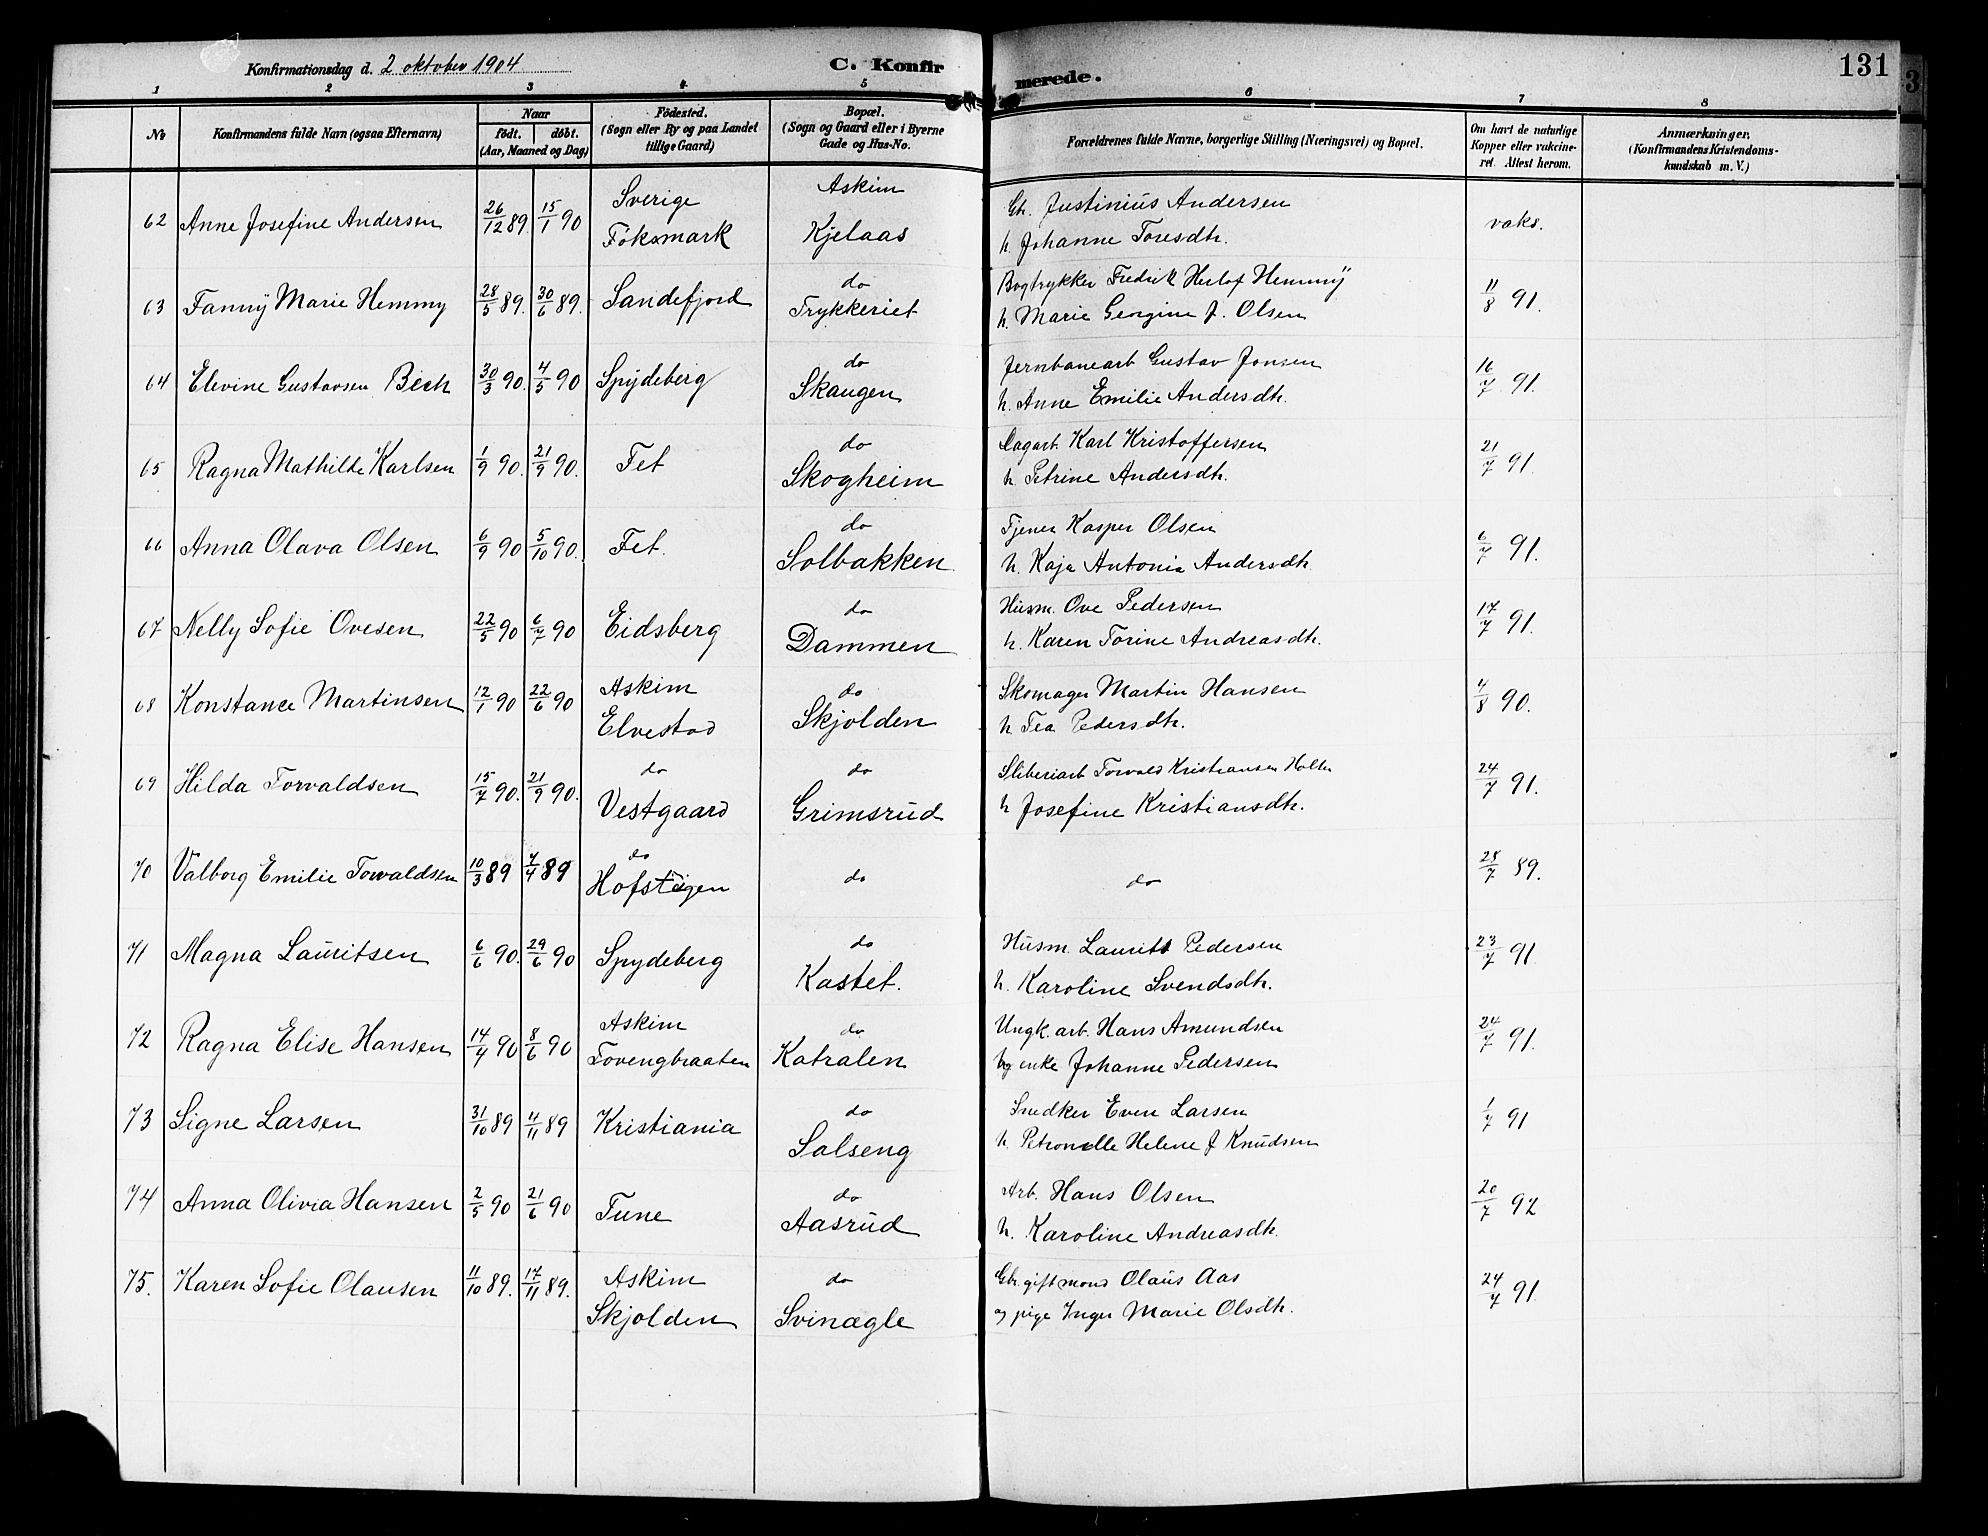 Konfirmationsdag d. 2 oktober 1904 C. Konfirmerede. 131
1 2 3 4 5 6 7 8
No Konfirmandens fulde Navn (ogsaa Efternavn) Naar født. døbt. (Aar, Maaned og Dag) Fødested. (Sogn eller By og paa Landet tillige Gaard) Bopæl. (Sogn og Gaard eller i Byerne Gade og Hus-No. Forældrenes fulde Navne, borgerlige Stilling (Næringsvei) og Bopæl. Om havt de naturlige Kopper eller vakcineret. Attest herom. Anmærkninger. (Konfirmandens Kristendomskundskab m. V.)
62 Anne Josefine Andersen 26/12 89. 15/1 90 Sverige Foksmark Askim Kjelaas Gb. Justinius Andersen vaks.
h. Johanne Toresdtr.
63 Fanny Marie Hemmy 28/5 89. 30/6 89. Sandefjord do Trykkeriet Bogtrykker Fredrik Herlof Hemmy 11/8 91.
h. Marie Georgine f. Olsen
64 Elevine Gustavsen Bech 30/3 90. 4/5 90 Spydeberg do Skaugen Jernbanearb Gustav Jonsen 16/7 91.
h. Anne Emilie Andersdtr.
65 Ragna Mathilde Karlsen 1/9 90. 21/9 90. Fet do Skogheim Dagarb. Karl Kristoffersen 21/7 91.
h. Petrine Andersdtr.
66 Anna Olava Olsen 6/9 90 5/10 90. Fet. do Solbakken Tjener Kasper Olsen 6/7 91.
h. Kaja Antonia Andersdtr
67 Nelly Sofie Ovesen 22/5 90 6/7 90 Eidsberg do Dammen Husm. Ove Pedersen 17/7 91.
h. Karen Torine Andreasdtr.
68 Konstance Martinsen 12/1 90 22/6 90 Askim Elvestad do Skjolden Skomager Martin Hansen 4/8 90.
h Tea Pedersdtr.
69 Hilda Torvaldsen 15/7 90. 21/9 90. do Vestgaard do Grimsrud Sliberiarb Torvald Kristiansen Holter 24/7 91.
h Josefine Kristiansdtr.
70 Valborg Emilie Torvaldsen 10/3 89 7/4 89 do Hofstigen do do 28/7 89.
71 Magna Lauritsen 6/6 90. 29/6 90 Spydeberg do Kastet. Husm. Laurits Pedersen 23/7 91.
h. Karoline Svendsdtr.
72 Ragna Elise Hansen 14/4 90 8/6 90 Askim Tovengbraaten do Katralen Ungk. arb. Hans Amundsen 24/7 91.
og enke Johanne Pedersen
73 Signe Larsen 31/10 89 4/11 89 Kristiania do Solseng Snedker Even Larsen 1/7 91
h. Petronelle Helene f Knudsen
74 Anna Olivia Hansen 2/5 90 21/6 90 Tune do Aasrud Arb. Hans Olsen 20/7 92
h. Karoline Andreasdtr.
75. Karen Sofie Olausen 11/10 89. 17/11 89. Askim Skjolden do Svinægle Gbr. gift mand Olaus Aas 24/7 91.
og pige Inger Marie Olsdtr.